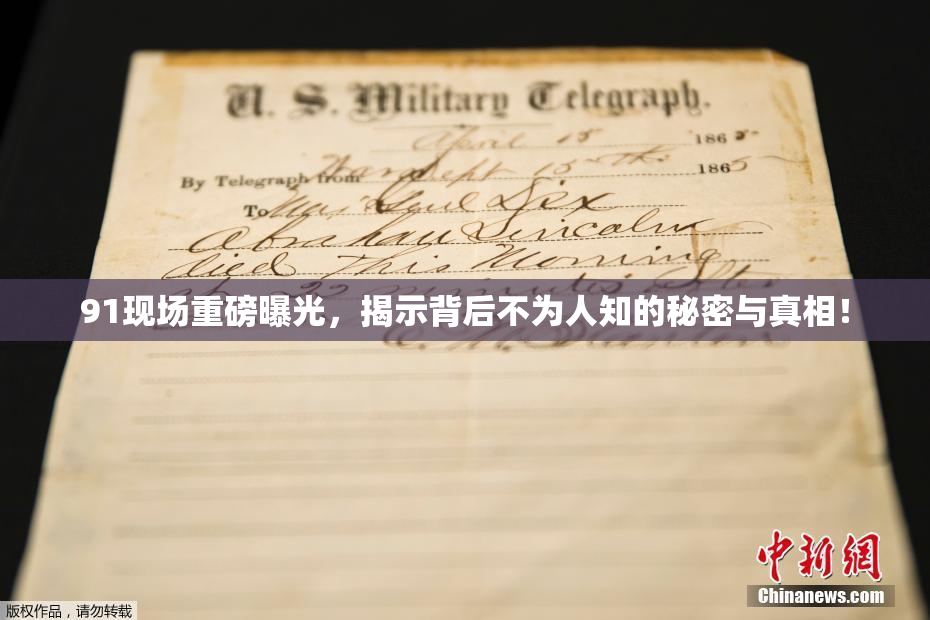 U. S. Military Telegraph.
April 15 1865
By Telegraph from War Dept 15th 1865
To Maj Genl Dix
Abraham Lincoln
died This Morning
at 22 minutes after
91现场重磅曝光，揭示背后不为人知的秘密与真相！
E. M. Stanton
中新網
Chinanews.com
版权作品，请勿转载